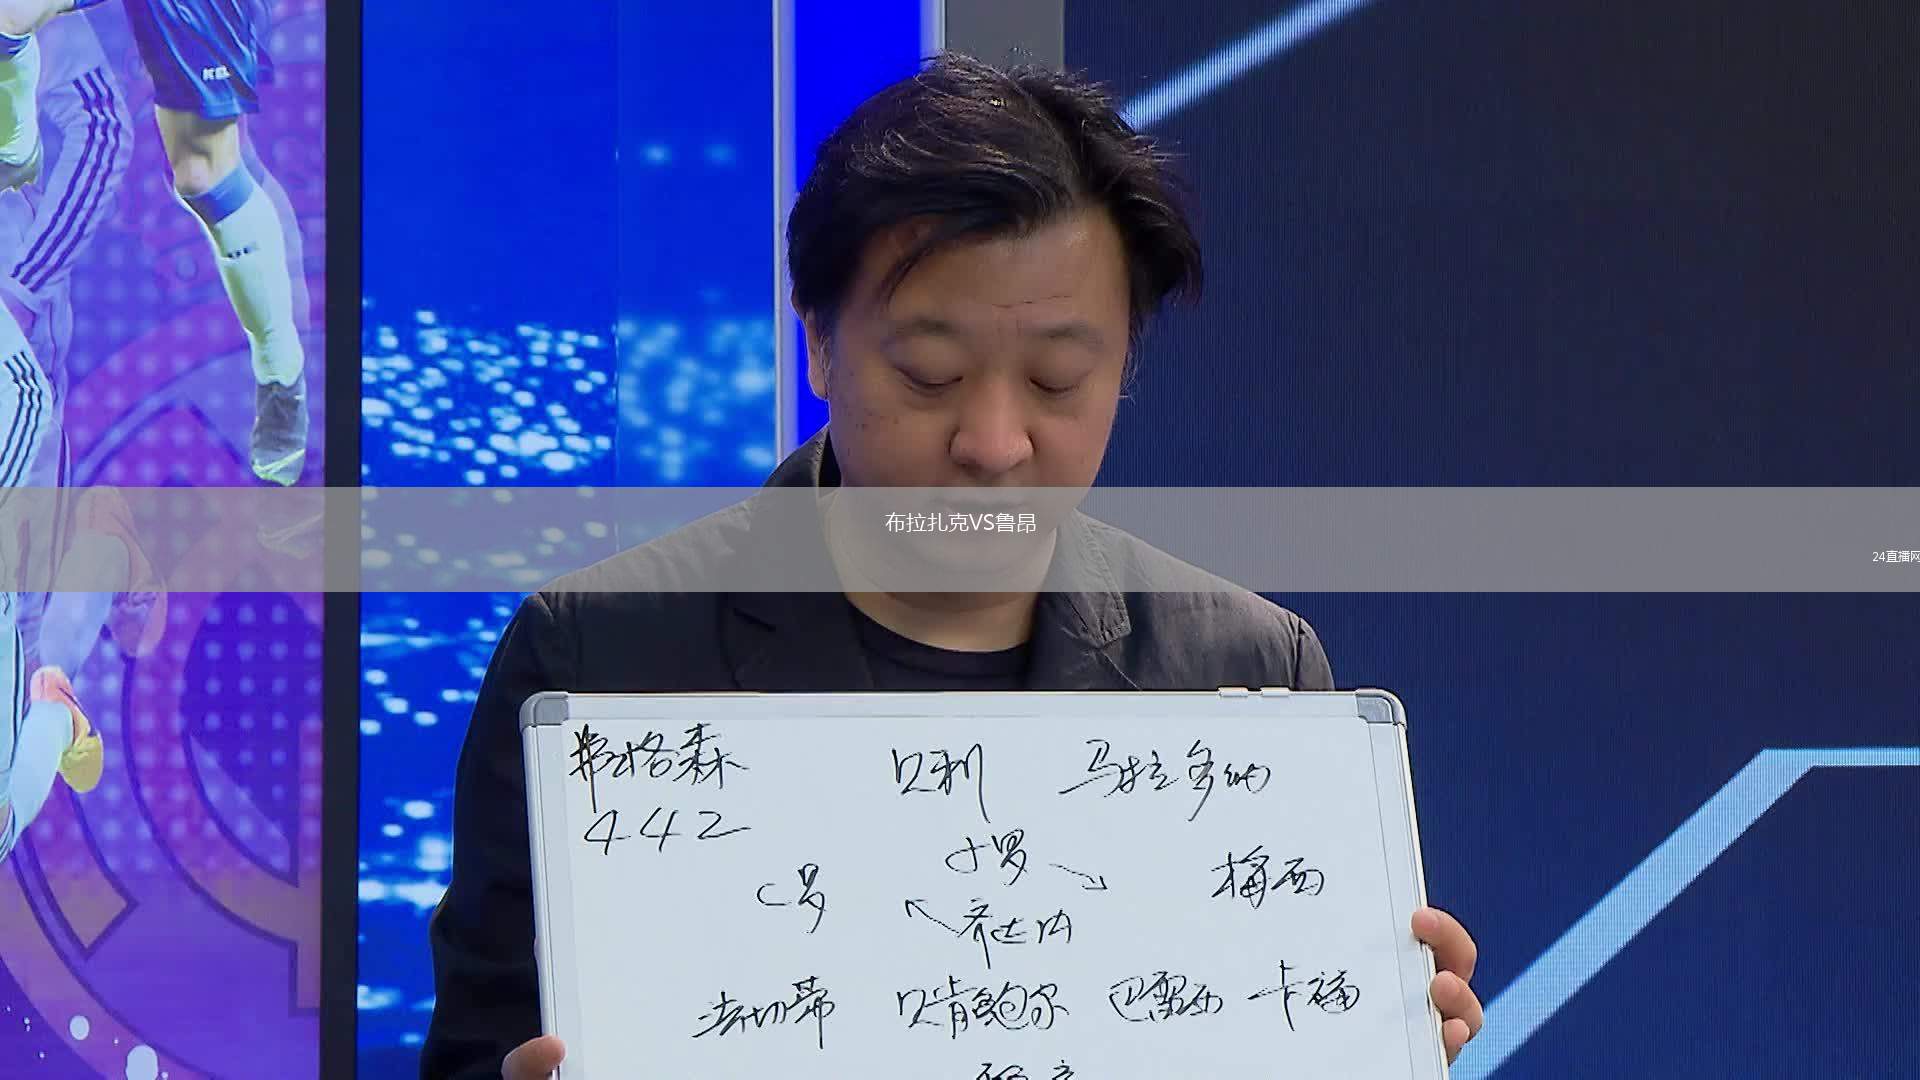 KEL
布拉扎克VS鲁昂
24直播网
弗格森 贝利 马拉多纳
442
小罗
C罗 梅西
齐达内
法切蒂 贝肯鲍尔 巴雷西 卡福